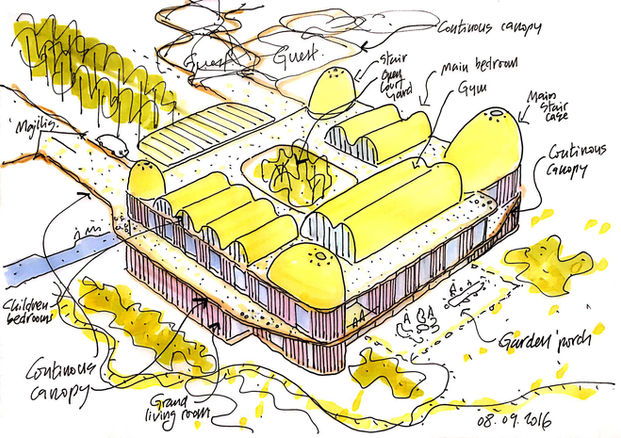 Continous canopy
Guest
Guest.
stair
Open
Court
yard
main bedroom
Gym
Main
stair
case
Majilis.
Continous
canopy
Children
bedrooms
Garden porch
Continous
canopy
Grand
living room
08.09.2016